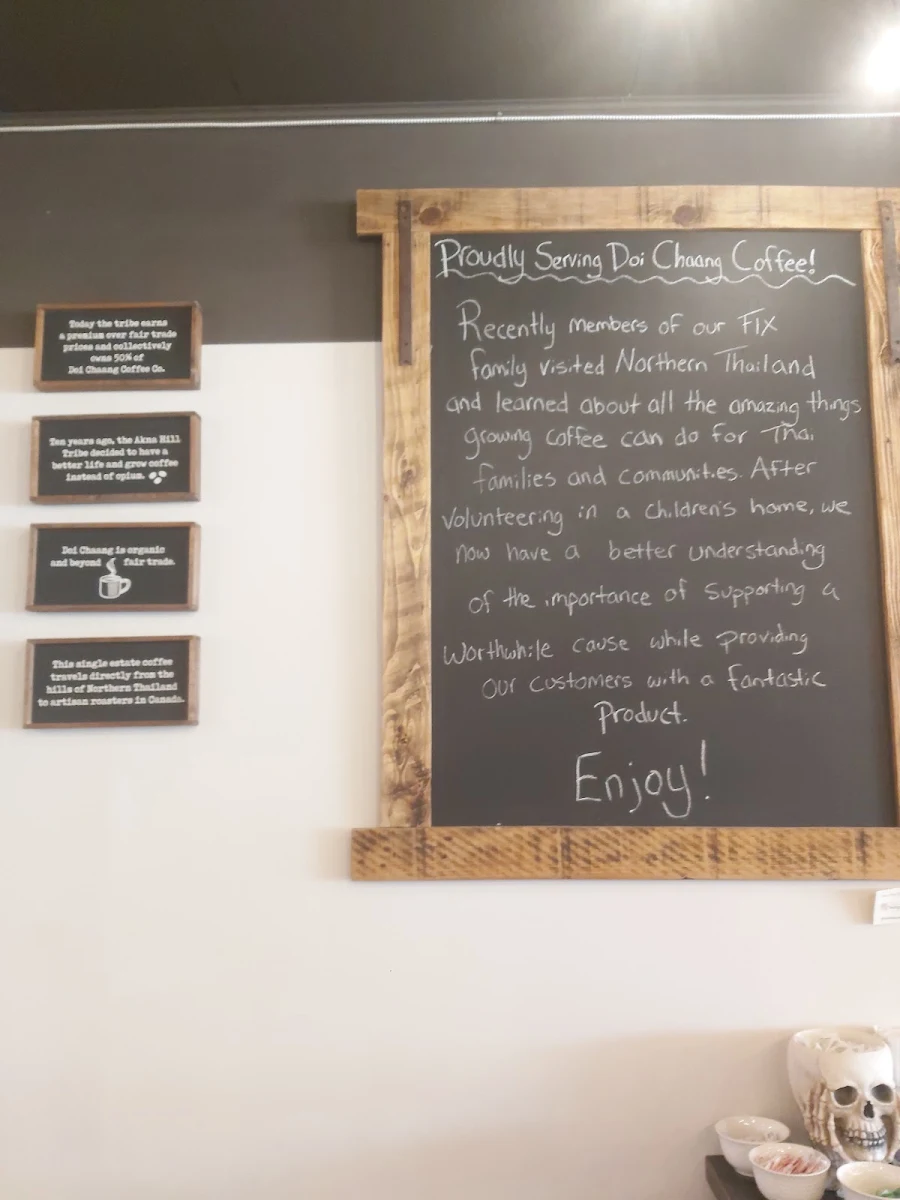 Today the tribe earns
a premium over fair trade
prices and collectively
owns 50% of
Doi Chaang Coffee Co.
Ten years ago, the Akha Hill
Tribe decided to have a
better life and grow coffee
instead of opium.
Doi Chaang is organic
and beyond fair trade.
This single estate coffee
travels directly from the
hills of Northern Thailand
to artisan roasters in Canada.
Proudly Serving Doi Chaang Coffee!
Recently members of our FIX
family visited Northern Thailand
and learned about all the amazing things
growing coffee can do for Thai
families and communities. After
volunteering in a children's home, we
now have a better understanding
of the importance of supporting a
worthwhile cause while providing
our customers with a fantastic
Product.
Enjoy!